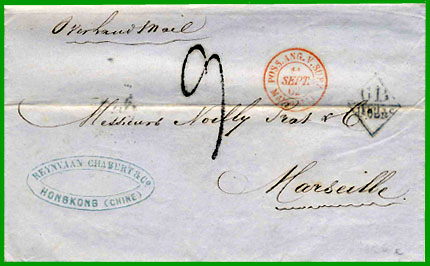 Overland Mail
9
POSS. ANG. V. SUEZ
SEPT.
62
GB
1F62
Messieurs Noilly Prat & C
Marseille
REYNVAAN CHABERT & Co
HONGKONG (CHINE)